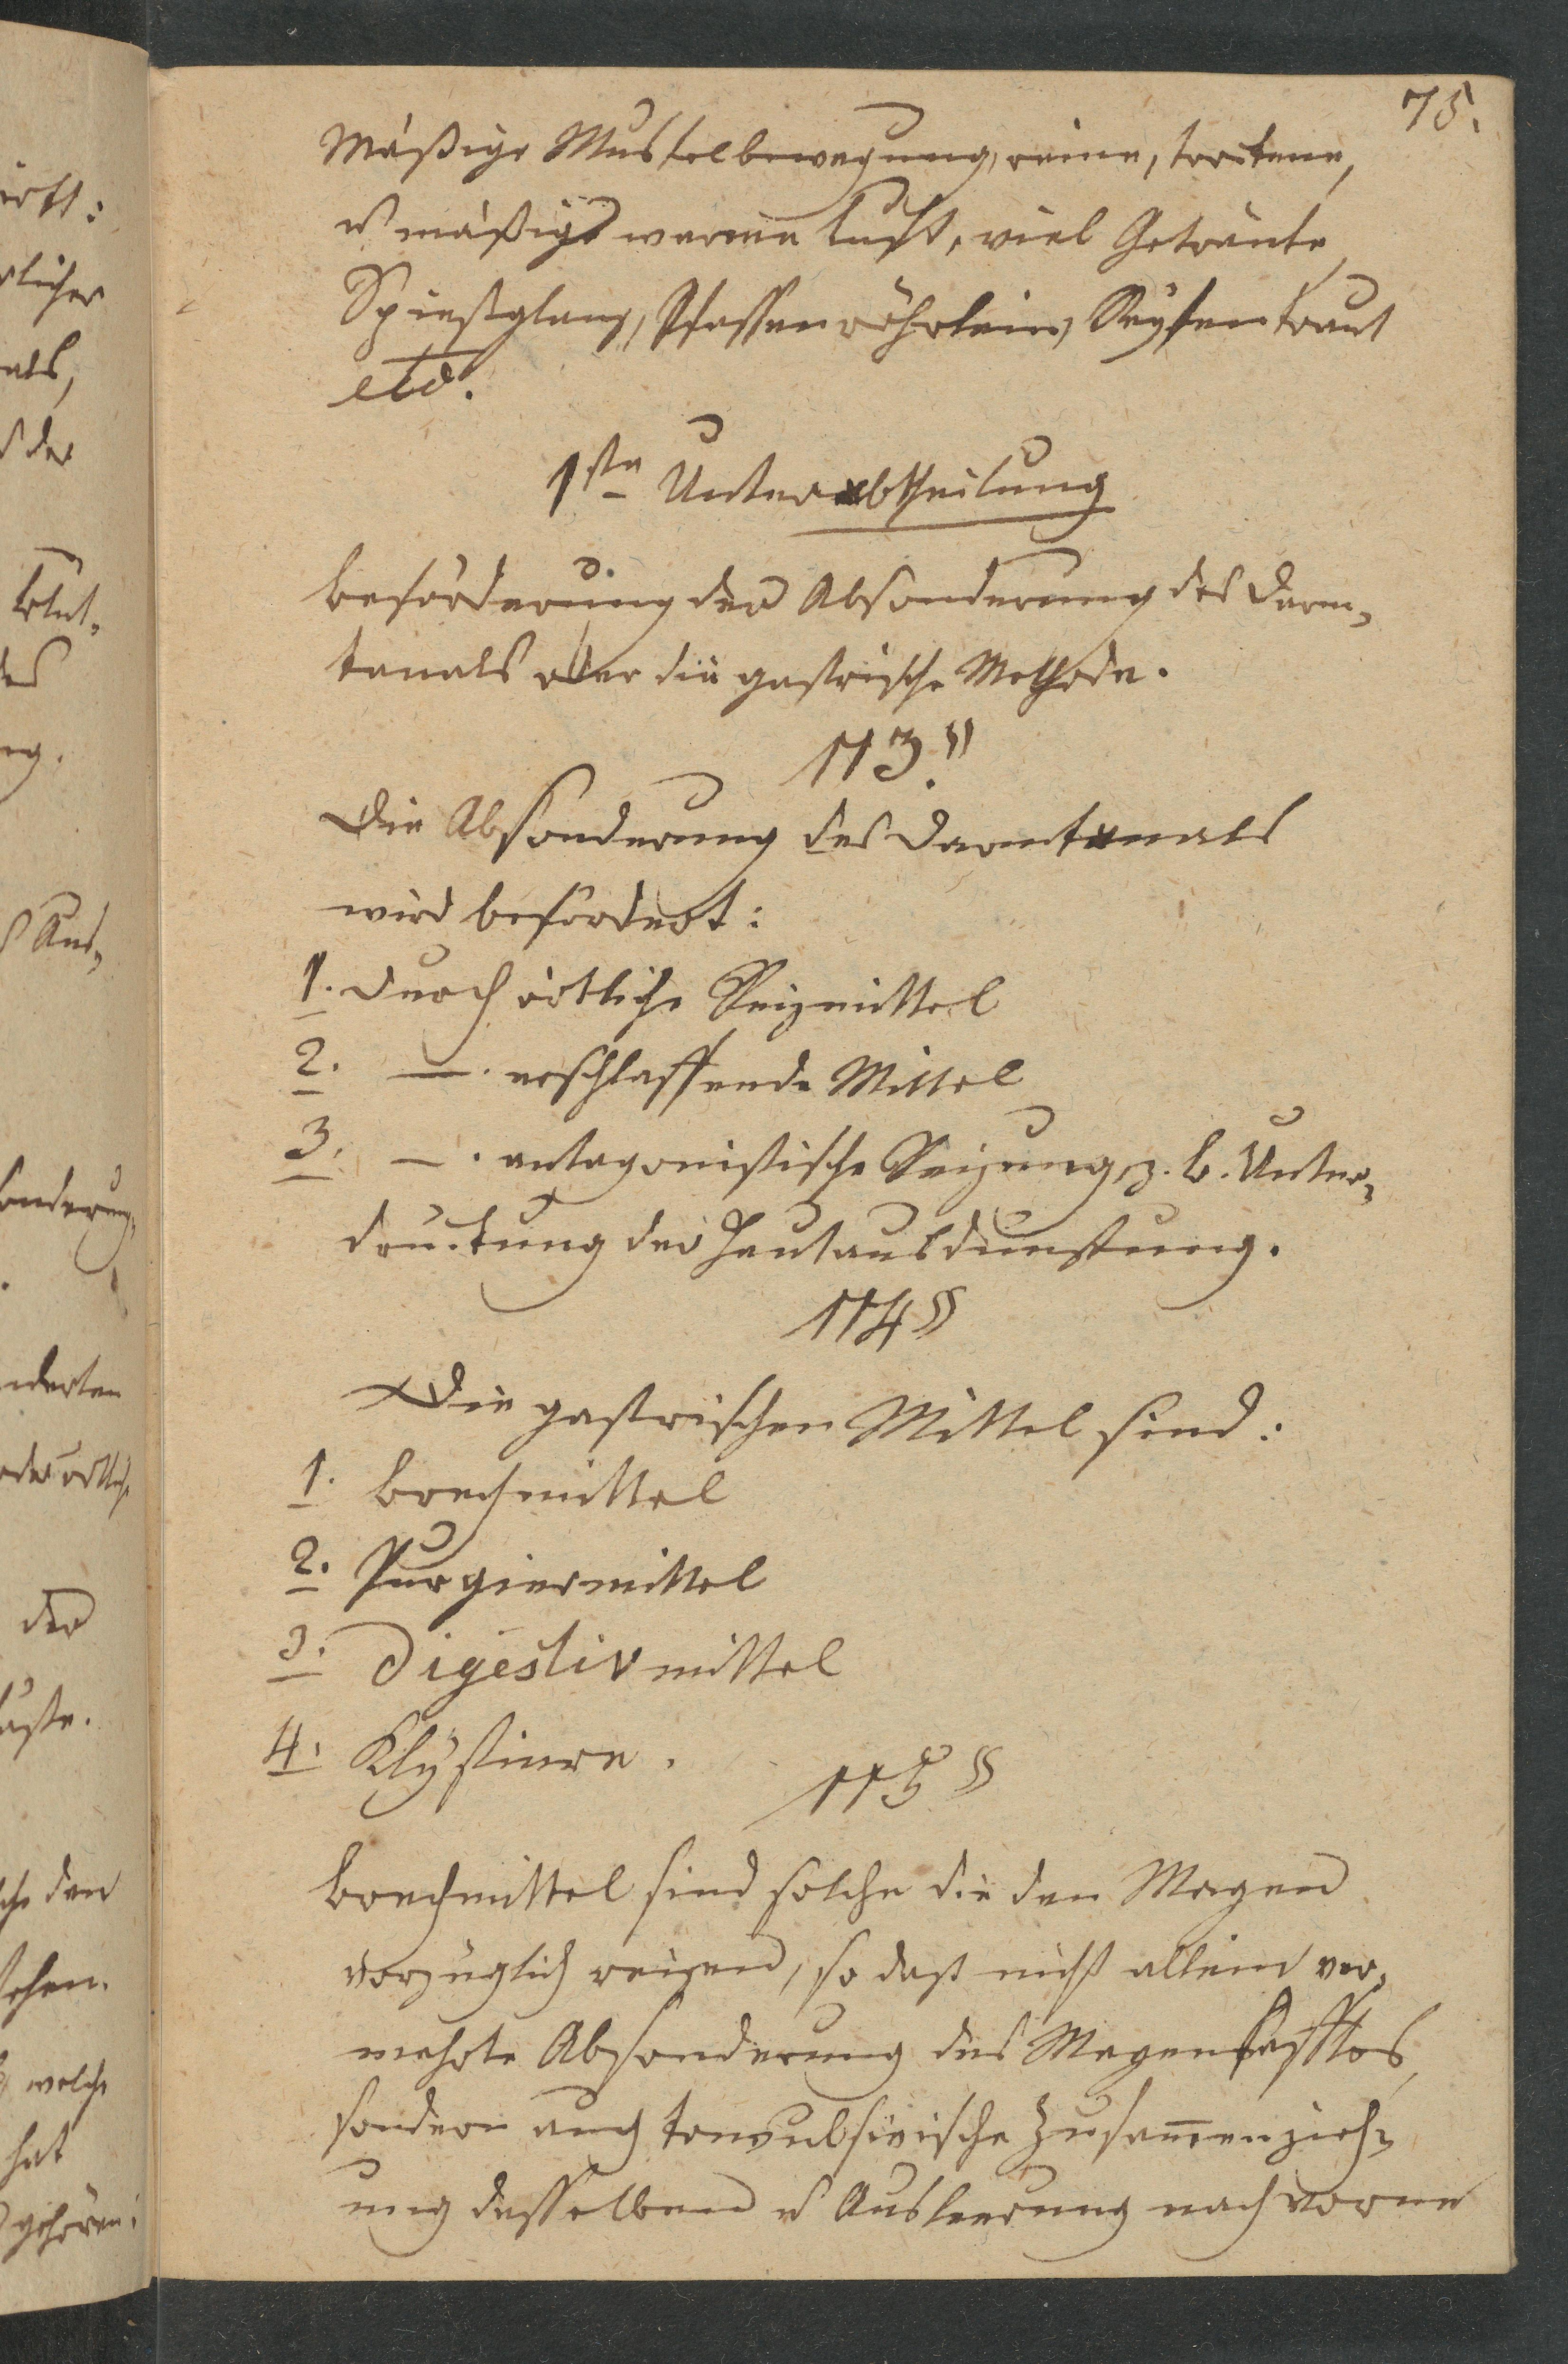 75.
Mäßige Muskelbewegung, reine, trockene,
u mäßige warme Luft, viel Getränke
Spießglanz, Pfaffenröhrlein, Seifenkraut
etc.
1ste Unterabtheilung
Beförderung der Absonderung des Darm-
kanals oder die gastrische Methode.
113.§
Die Absonderung des Darmkanals
wird befördert:
1. Durch örtliche Reizmittel
2. —. erschlaffende Mittel
3. —. antagonistische Reizung, z. B. Unter-
drückung der Hautausdünstung.
114§
Die gastrischen Mittel sind:
1. Brechmittel
2. Purgiermittel
3. Digestivmittel
4. Klystiere.
115§
Brechmittel sind solche die den Magen
vorzüglich reizen, so daß nicht allein ver-
mehrte Absonderung des Magensafftes,
sondern auch konvulsivische Zusam̅enzieh-
ung desselben u Ausleerung nach vorne